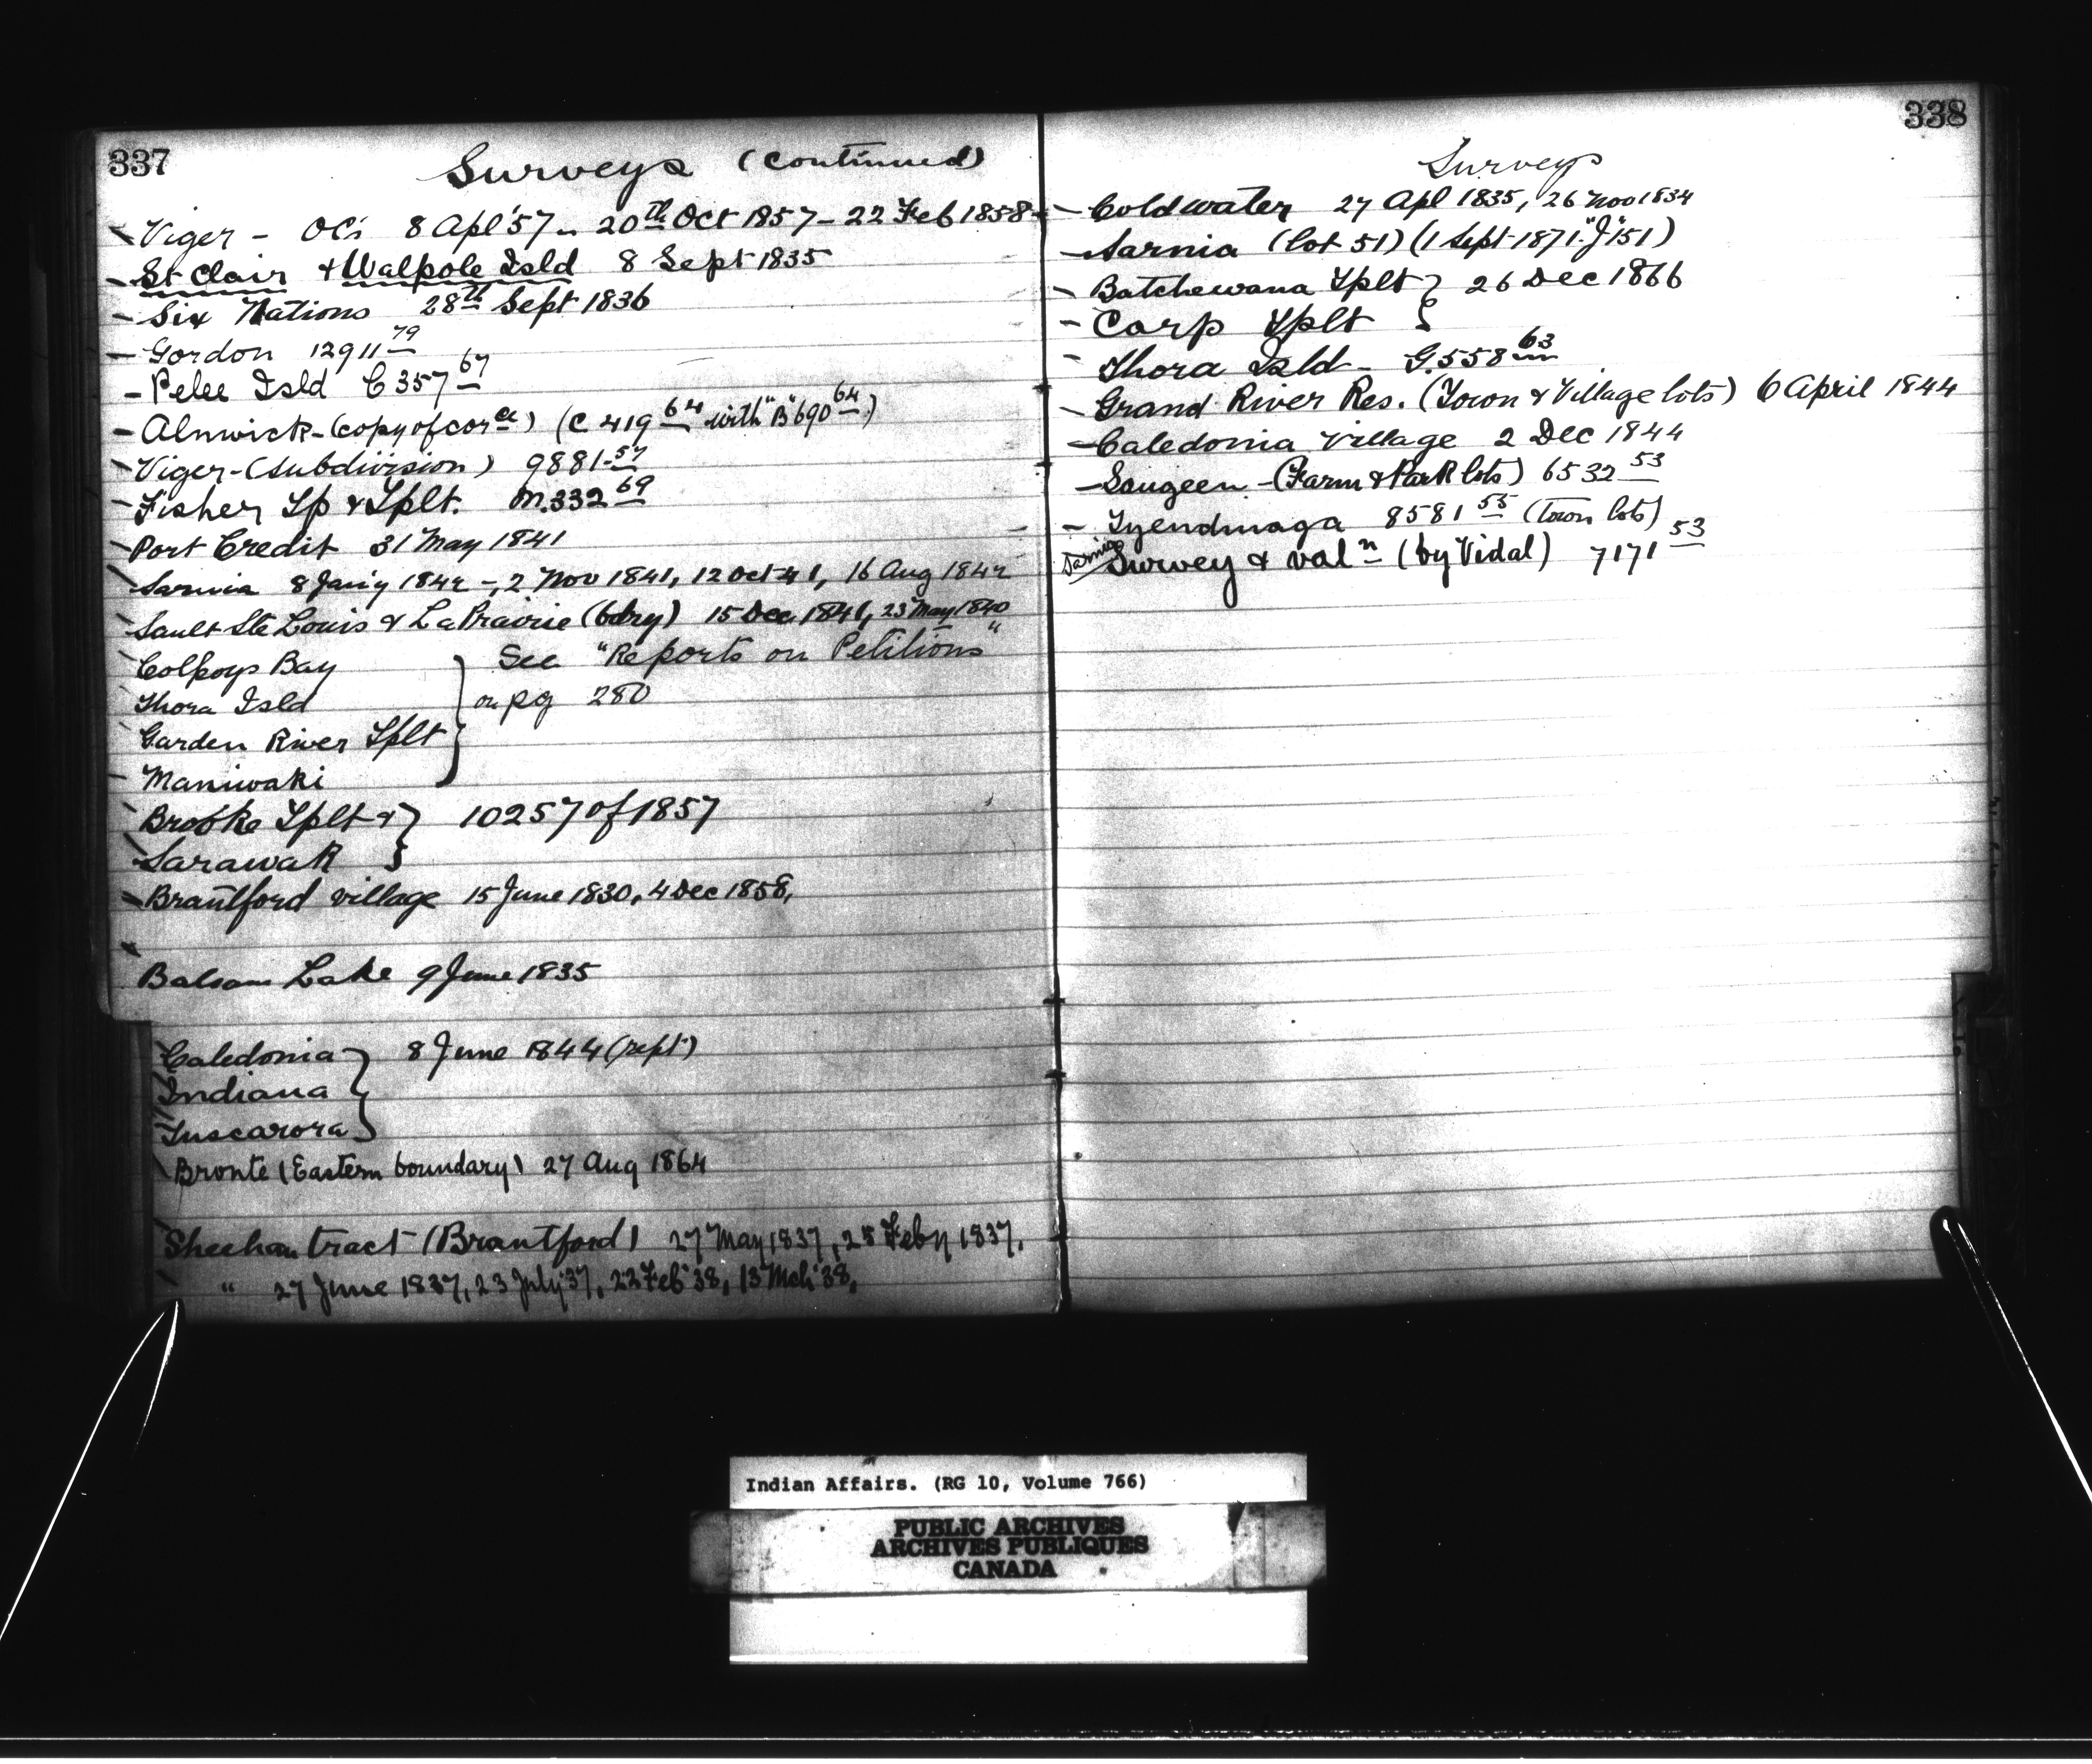 337
Surveys (continued)
- Viger - OC's 8 Apl '57 - 20th Oct 1857 - 22 Feb 1858
- St Clair & Walpole Isld 8 Sept 1835
- Six Nations 28th Sept 1836
- Gordon 12911 79
- Pelee Isld C 357 67
- Alnwick - (copy of corce) (C 419 64 with "B" 690 64)
- Viger - (Subdivision) 9881-57
- Fisher Tp & Tplt. M.332 69
- Port Credit 31 May 1841
- Sarnia 8 Jan'y 1842 -, 2 Nov 1841, 12 Oct 41, 16 Aug 1842
- Sault Ste Louis & La Prairie (bdry) 15 Dec 1841, 23 May 1840
- Colpoys Bay } See "Reports on Petitions"
- Thora Isld on pg 280
- Garden River Tplt
- Maniwaki
- Brooke Tplt & } 10257 of 1857
- Sarawak
- Brantford village 15 June 1830, 4 Dec 1858,
Balsam Lake 9 June 1835
Caledonia } 8 June 1844 (rept)
Indiana
Tuscarora
Bronte (Eastern boundary) 27 Aug 1864
Sheehan tract (Brantford) 27 May 1837, 25 Feby 1837,
" 27 June 1837, 23 July '37, 22 Feb '38, 13 Mch '38,
338
Surveys
- Coldwater 27 Apl 1835, 26 Nov 1834
- Sarnia (lot 51) (1 Sept 1871. "J" 151)
- Batchewana Tplt } 26 Dec 1866
- Carp Tplt
- Thora Isld - G.558 63
- Grand River Res. (Town & Village lots) 6 April 1844
- Caledonia Village 2 Dec 1844
- Saugeen - (Farm & Park lots) 6532 53
- Tyendinaga 8581 55 (Town lots)
Sarnia Survey & valn (by Vidal) 7171 53
Indian Affairs. (RG 10, Volume 766)
PUBLIC ARCHIVES
ARCHIVES PUBLIQUES
CANADA